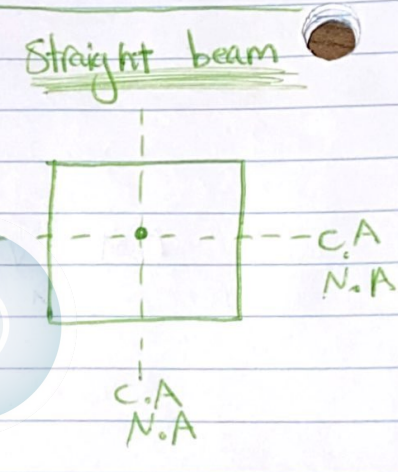 Straight beam
C.A
N.A
C.A
N.A